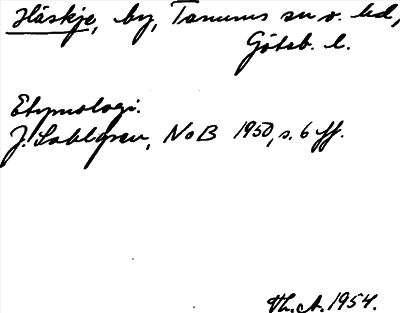 Häskje, by, Tanums sn o. hd,
Göteb. l.
Etymologi.
J. Sahlgren, NoB 1950, s. 6 ff.
Th. A. 1954.